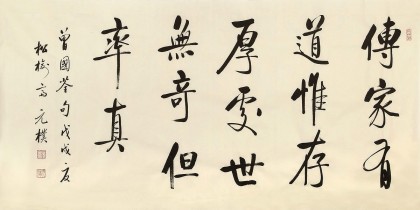 傳家有
道惟存
厚處世
無奇但
率真
曾國荃句戊戌夏
松樹高元樸